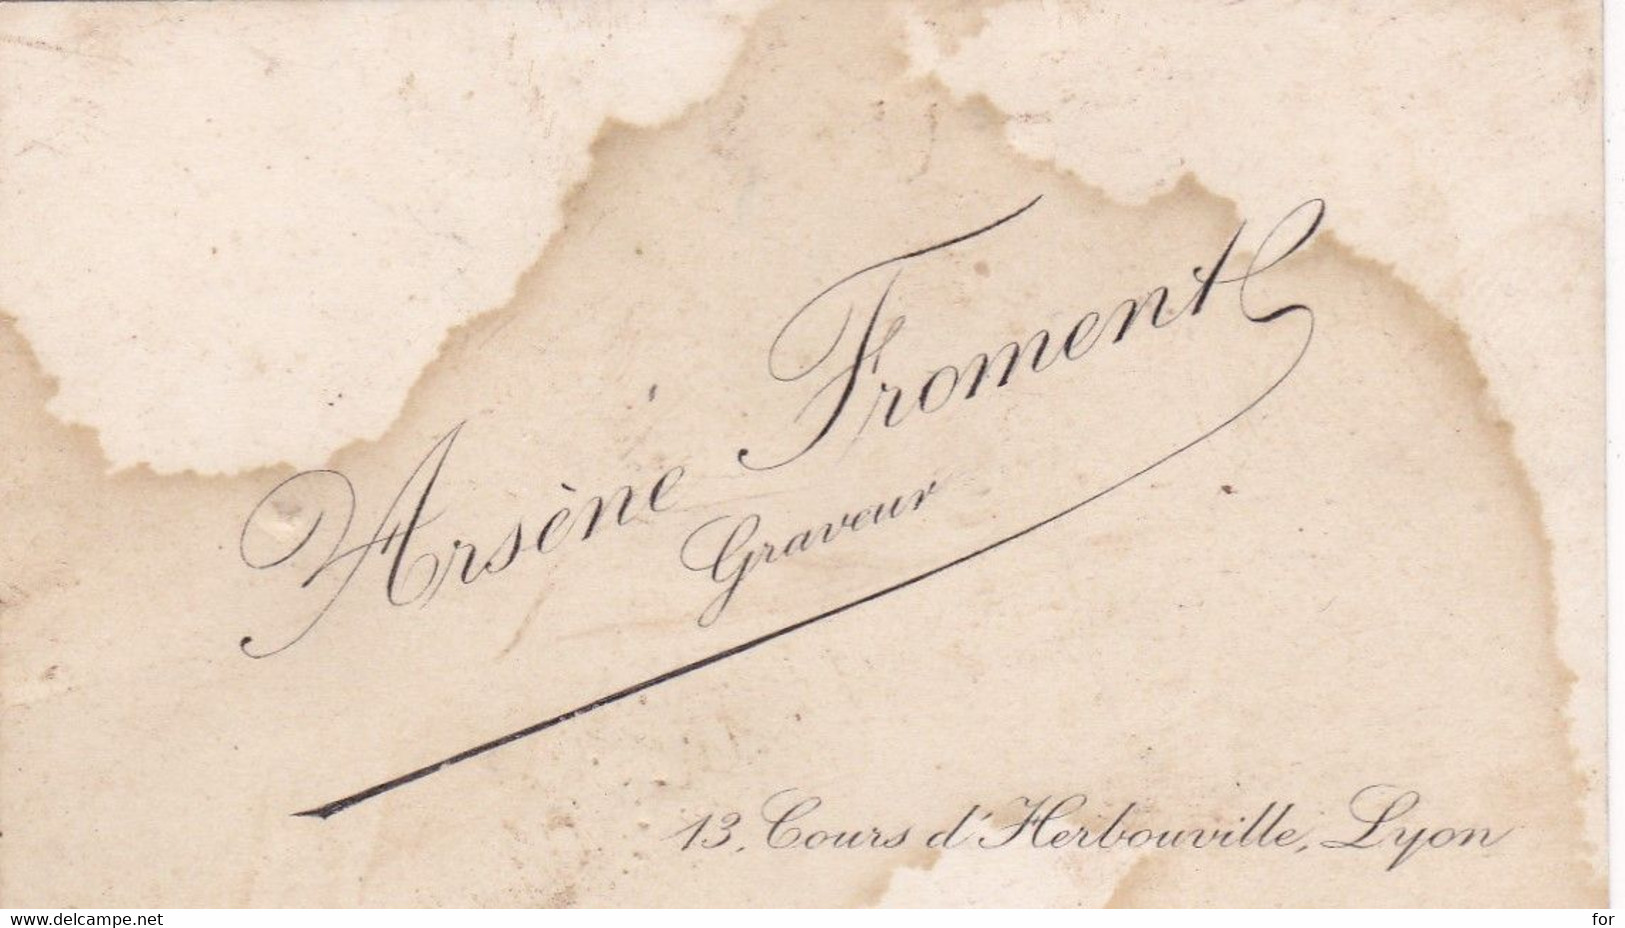 Arsène Froment
Graveur
13, Cours d'Herbouville, Lyon
www.delcampe.net
for